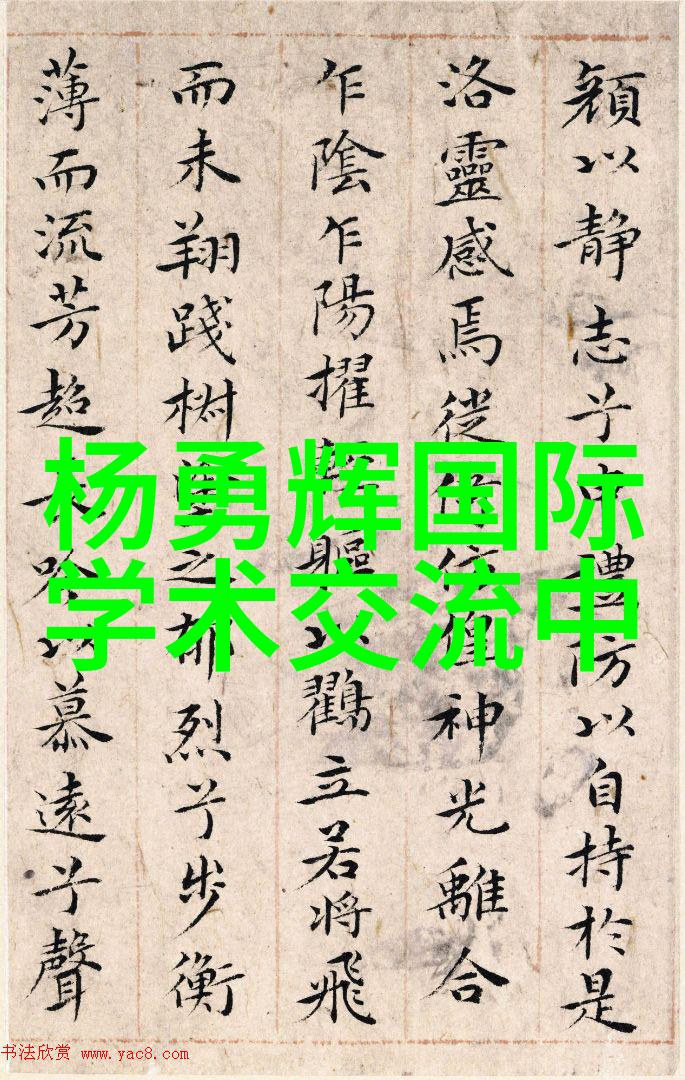 顔以靜志兮申禮防以自持於是
洛靈感焉徙倚彷徨神光離合
乍陰乍陽擢輕軀以鶴立若將飛
而未翔踐椒塗之郁烈兮步衡
薄而流芳超長吟以慕遠兮聲
杨勇辉国际
学术交流中
书法欣赏 www.yac8.com